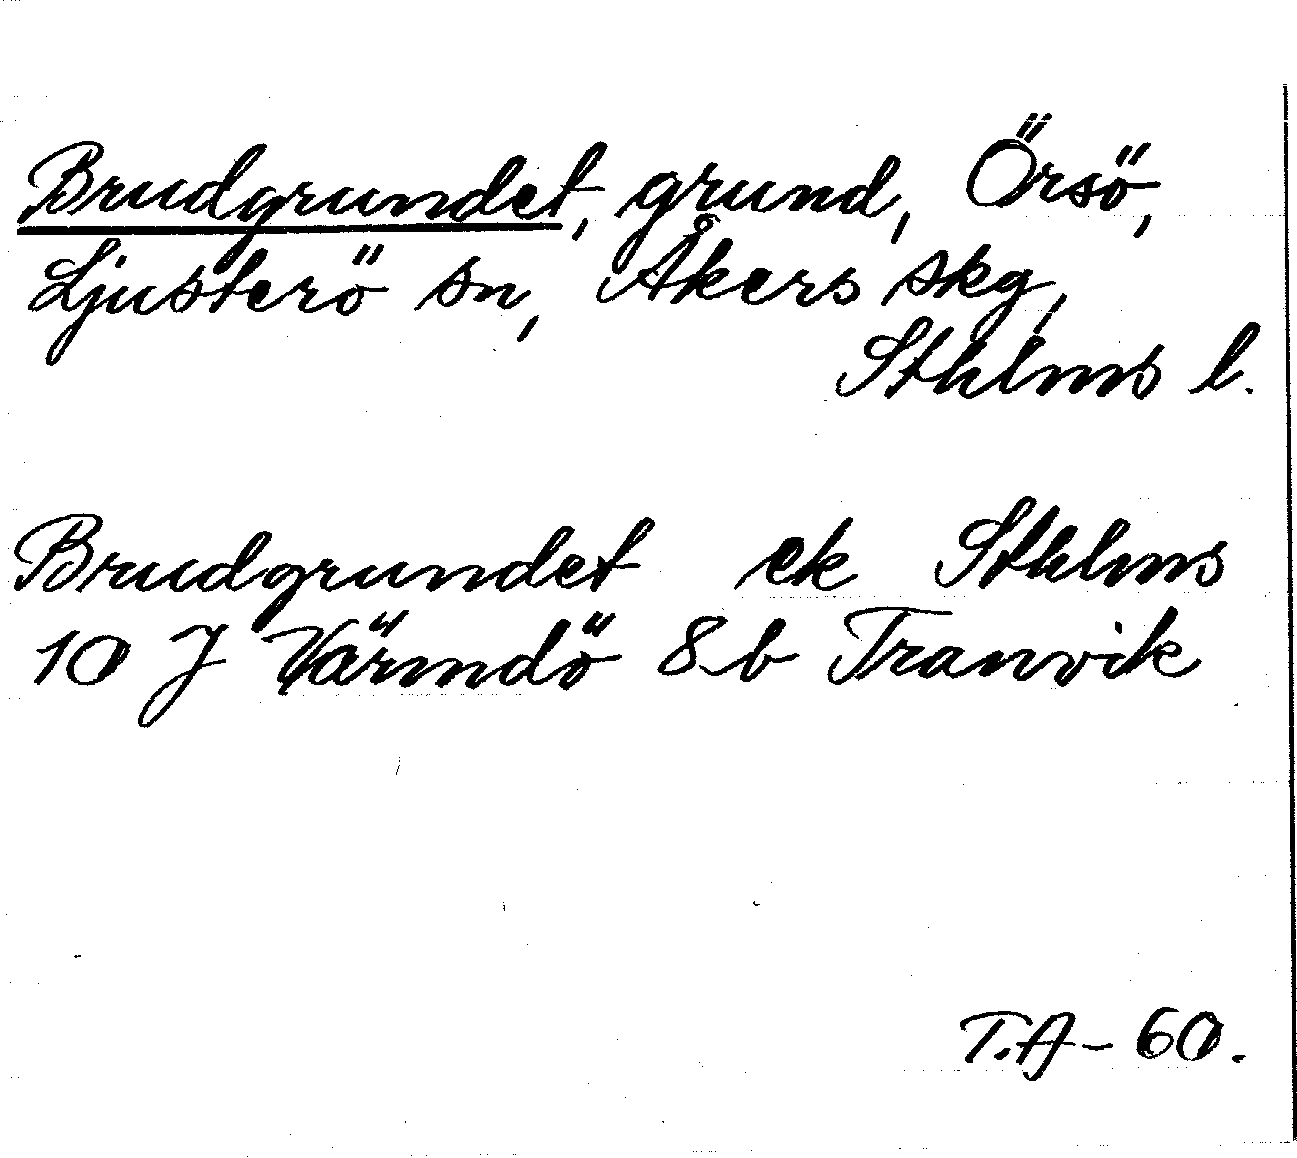 Brudgrundet, grund, Örsö,
Ljusterö sn, Åkers skg,
Sthlms l.
Brudgrundet ek Sthlms
10 J Värmdö 8b Tranvik
T.A-60.